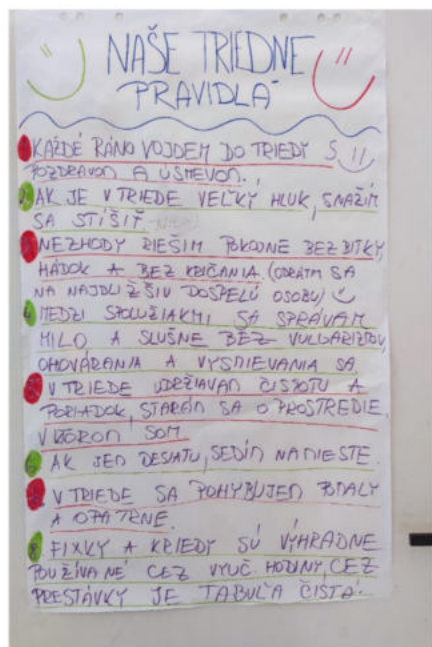 NAŠE TRIEDNE
PRAVIDLÁ
1. KAŽDÉ RÁNO VOJDEM DO TRIEDY S
POZDRAVOM A ÚSMEVOM.
2. AK JE V TRIEDE VEĽKÝ HLUK, SNAŽÍM
SA STÍŠIŤ
3. NEZHODY RIEŠIM POKOJNE BEZ BITKY,
HÁDOK A BEZ KRIČANIA. (OBRÁTIM SA
NA NAJBLIŽŠIU DOSPELÚ OSOBU)
4. MEDZI SPOLUŽIAKMI SA SPRÁVAM
MILO A SLUŠNE BEZ VULGARIZMOV,
OHOVÁRANIA A VYSMIEVANIA SA.
5. V TRIEDE UDRŽIAVAM ČISTOTU A
PORIADOK, STARÁM SA O PROSTREDIE,
V KTOROM SOM.
6. AK JEM DESIATU, SEDÍM NA MIESTE.
7. V TRIEDE SA POHYBUJEM POMALY
A OPATRNE.
8. FIXKY A KRIEDY SÚ VÝHRADNE
POUŽÍVANÉ CEZ VYUČ. HODINY, CEZ
PRESTÁVKY JE TABUĽA ČISTÁ.